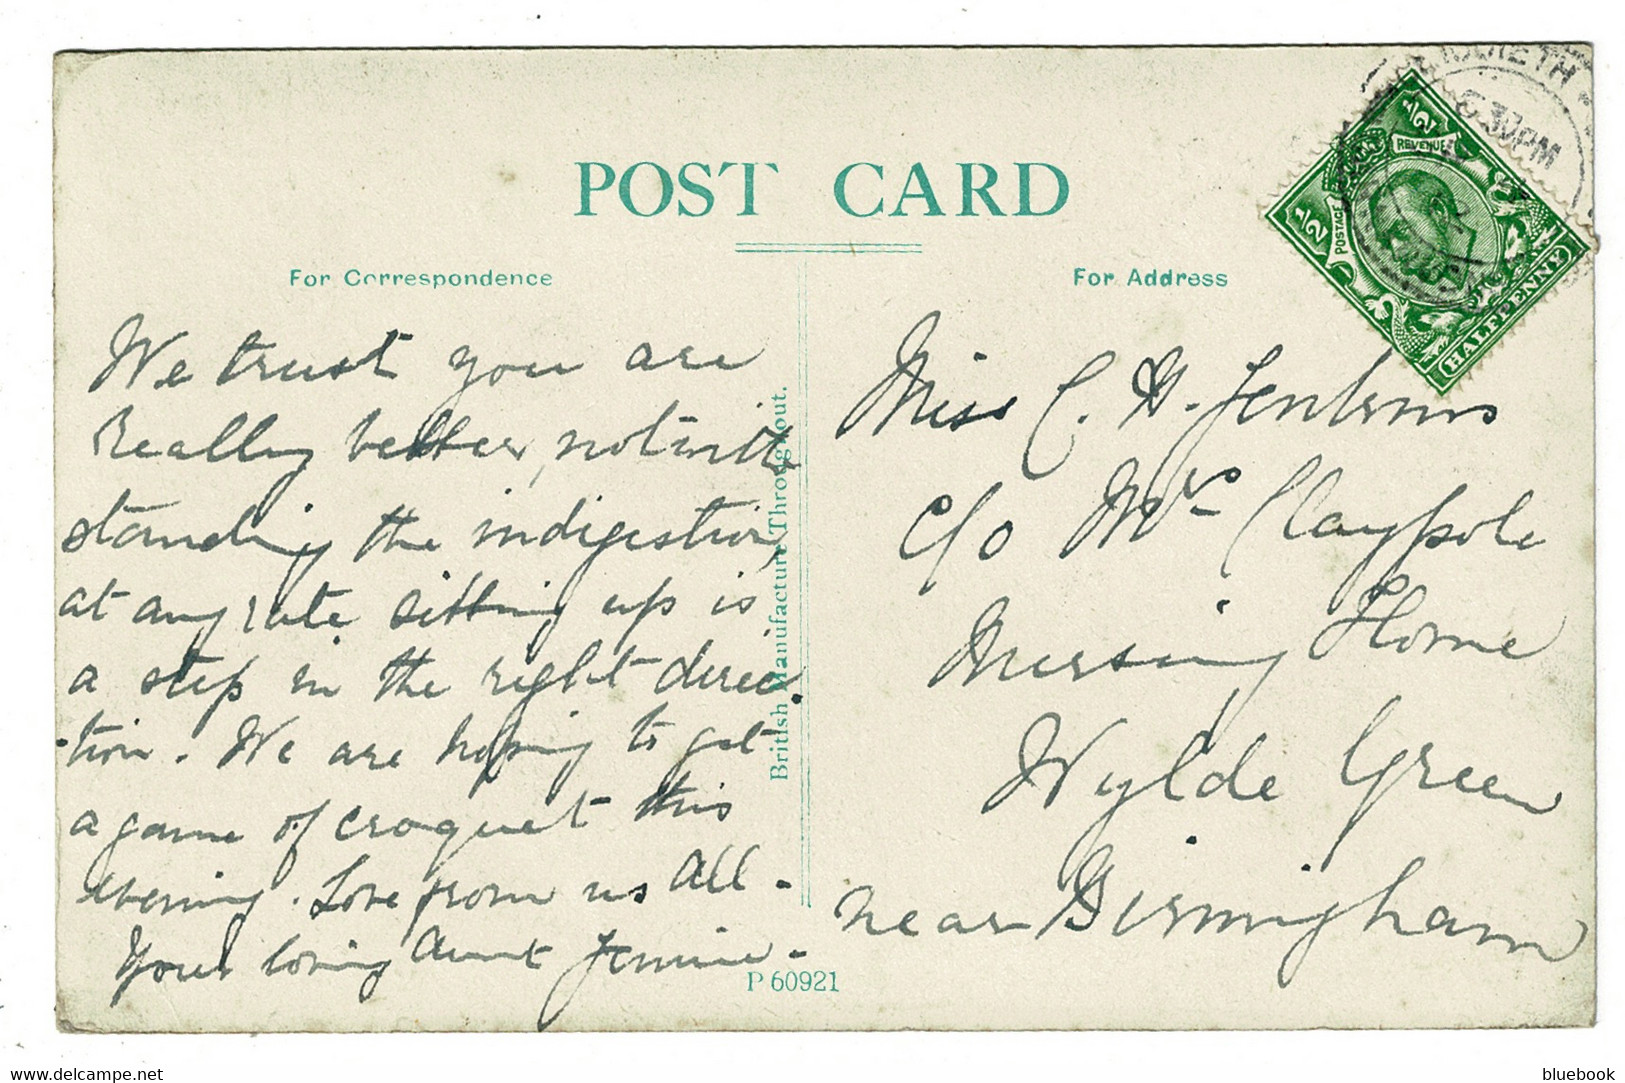 POST CARD
For Correspondence
We trust you are
really better, notwith
standing the indigestion,
at any rate sitting up is
a step in the right direc-
-tion. We are hoping to get
a game of croquet this
evening. Love from us all -
Your loving Aunt Jennie -
British Manufacture Throughout.
P 60921
For Address
Miss C. H. Jenkins
c/o Mrs Claypole
Nursing Home
Wylde Green
near Birmingham
POSTAGE
REVENUE
1/2
1/2
HALFPENNY
30PM
delcampe.net
bluebook